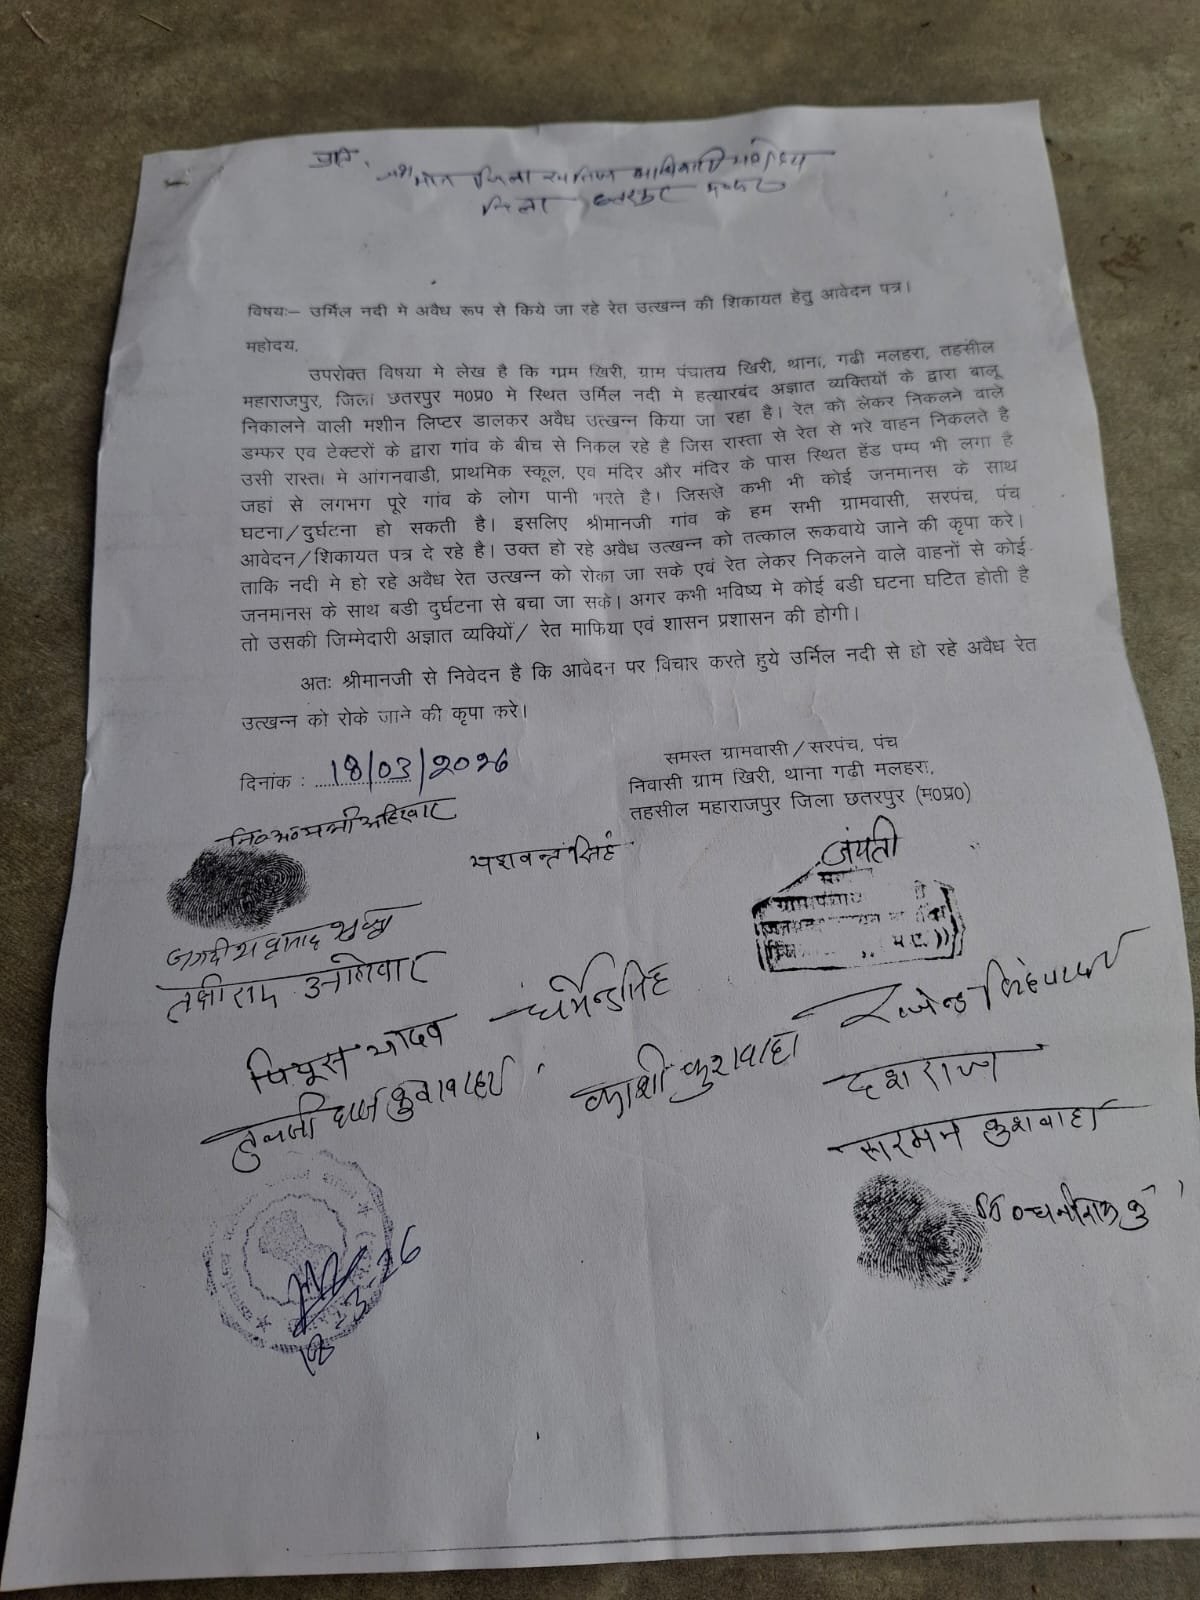 प्रति,
श्रीमान जिला खनिज अधिकारी महोदय
जिला छतरपुर म०प्र०
विषयः– उर्मिल नदी मे अवैध रूप से किये जा रहे रेत उत्खन्न की शिकायत हेतु आवेदन पत्र।
महोदय,
उपरोक्त विषया मे लेख है कि गा्रम खिरी, ग्राम पंचातय खिरी, थाना, गढी मलहरा, तहसील
महाराजपुर, जिला छतरपुर म0प्र0 मे स्थित उर्मिल नदी मे हत्यारबंद अज्ञात व्यक्तियों के द्वारा बालू
निकालने वाली मशीन लिप्टर डालकर अवैध उत्खन्न किया जा रहा है। रेत को लेकर निकलने वाले
डम्फर एव टेक्टरों के द्वारा गांव के बीच से निकल रहे है जिस रास्ता से रेत से भरे वाहन निकलते है
उसी रास्ता मे आंगनवाडी, प्राथमिक स्कूल, एव मंदिर और मंदिर के पास स्थित हेंड पम्प भी लगा है
जहां से लगभग पूरे गांव के लोग पानी भरते है। जिससे कभी भी कोई जनमानस के साथ
घटना/दुर्घटना हो सकती है। इसलिए श्रीमानजी गांव के हम सभी ग्रामवासी, सरपंच, पंच
आवेदन/शिकायत पत्र दे रहे है। उक्त हो रहे अवैध उत्खन्न को तत्काल रूकवाये जाने की कृपा करे।
ताकि नदी मे हो रहे अवैध रेत उत्खन्न को रोका जा सके एवं रेत लेकर निकलने वाले वाहनों से कोई
जनमानस के साथ बडी दुर्घटना से बचा जा सके। अगर कभी भविष्य मे कोई बडी घटना घटित होती है
तो उसकी जिम्मेदारी अज्ञात व्यक्यिों/ रेत माफिया एवं शासन प्रशासन की होगी।
अतः श्रीमानजी से निवेदन है कि आवेदन पर विचार करते हुये उर्निल नदी से हो रहे अवैध रेत
उत्खन्न को रोके जाने की कृपा करे।
दिनांक : 18/03/2026
समस्त ग्रामवासी/सरपंच, पंच
निवासी ग्राम खिरी, थाना गढी मलहरा,
तहसील महाराजपुर जिला छतरपुर (म0प्र0)
अहिरवार
यशवन्त सिंह
जंयती
धर्मेन्द्र सिंह
पियूस यादव
काशी कुशवाहा
राजेन्द्र
देशराज
सरमन कुशवाहा
18-3-26